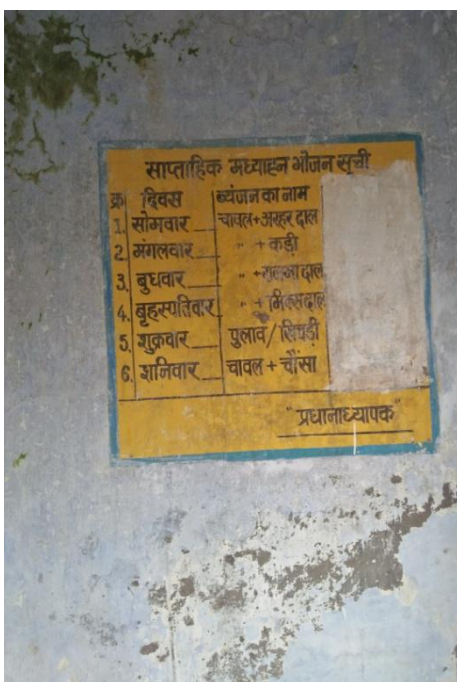 साप्ताहिक मध्याहन भोजन सूची
क्र दिवस व्यंजन का नाम
1. सोमवार चावल+अरहर दाल
2. मंगलवार " + कढ़ी
3. बुधवार " + दाल
4. बृहस्पतिवार " + मिक्स दाल
5. शुक्रवार पुलाव/खिचड़ी
6. शनिवार चावल + चौंसा
"प्रधानाध्यापक"